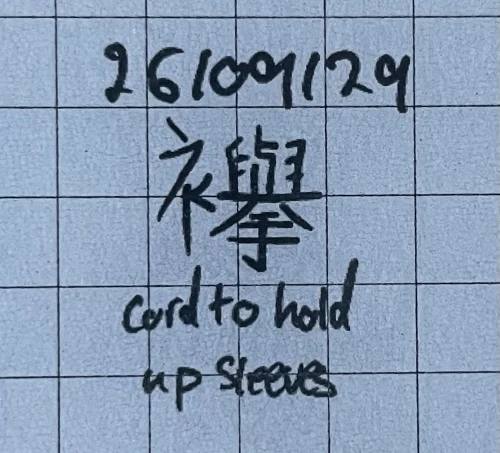 26/09/29
襷
cord to hold
up sleeves